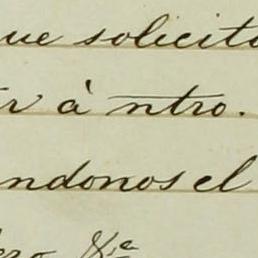 ue solicita
r à ntro.
ndonos el
ero &a